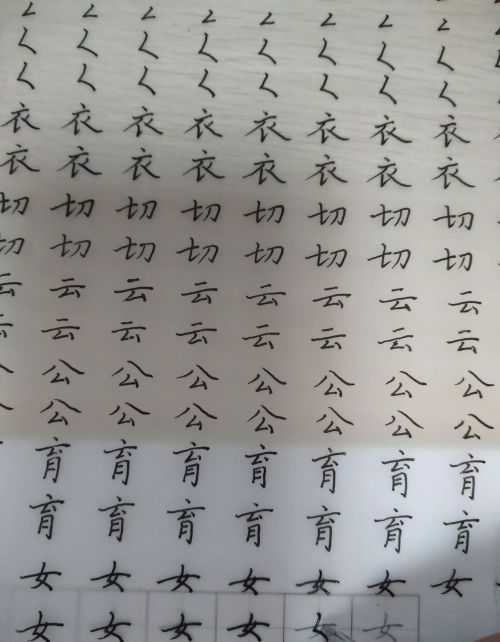 衣衣衣衣衣衣衣衣
衣衣衣衣衣衣衣衣
切切切切切切切切
切切切切切切切切
云云云云云云云云
云云云云云云云云
公公公公公公公
公公公公公公公
育育育育育育育
育育育育育育育
女女女女女女女
女女女女女女